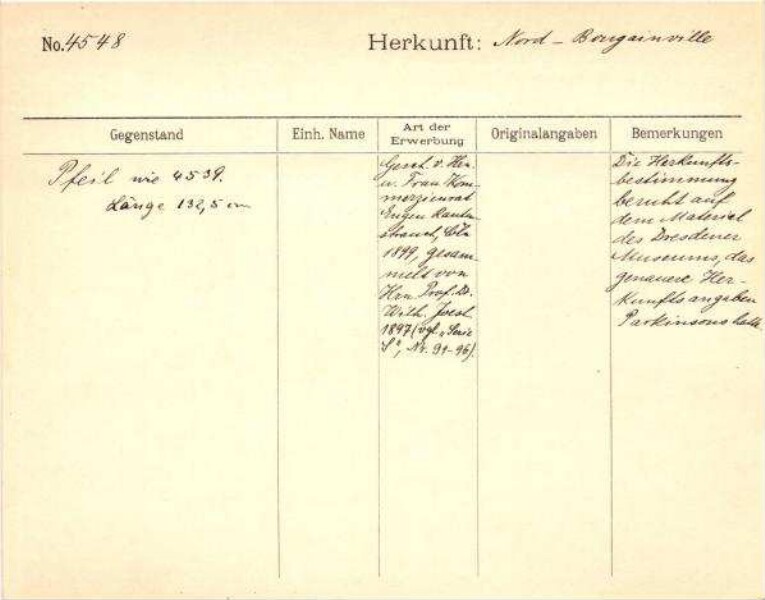 No. 4548
Herkunft: Nord - Bougainville
Gegenstand
Einh. Name
Art der Erwerbung
Originalangaben
Bemerkungen
Pfeil wie 4539.
Länge 132,5 cm
Gesch. v. Hrn.
u. Frau Kom-
merzienrat
Eugen Rauten-
strauch, Cöln
1899, gesam-
melt von
Hrn Prof. Dr.
Wilh. Joest
1897 (vgl. „Serie
S", Nr. 91-96).
Die Herkunfts-
bestimmung
beruht auf
dem Material
des Dresdener
Museums, das
genauere Her-
kunftsangaben
Parkinsons hatte.